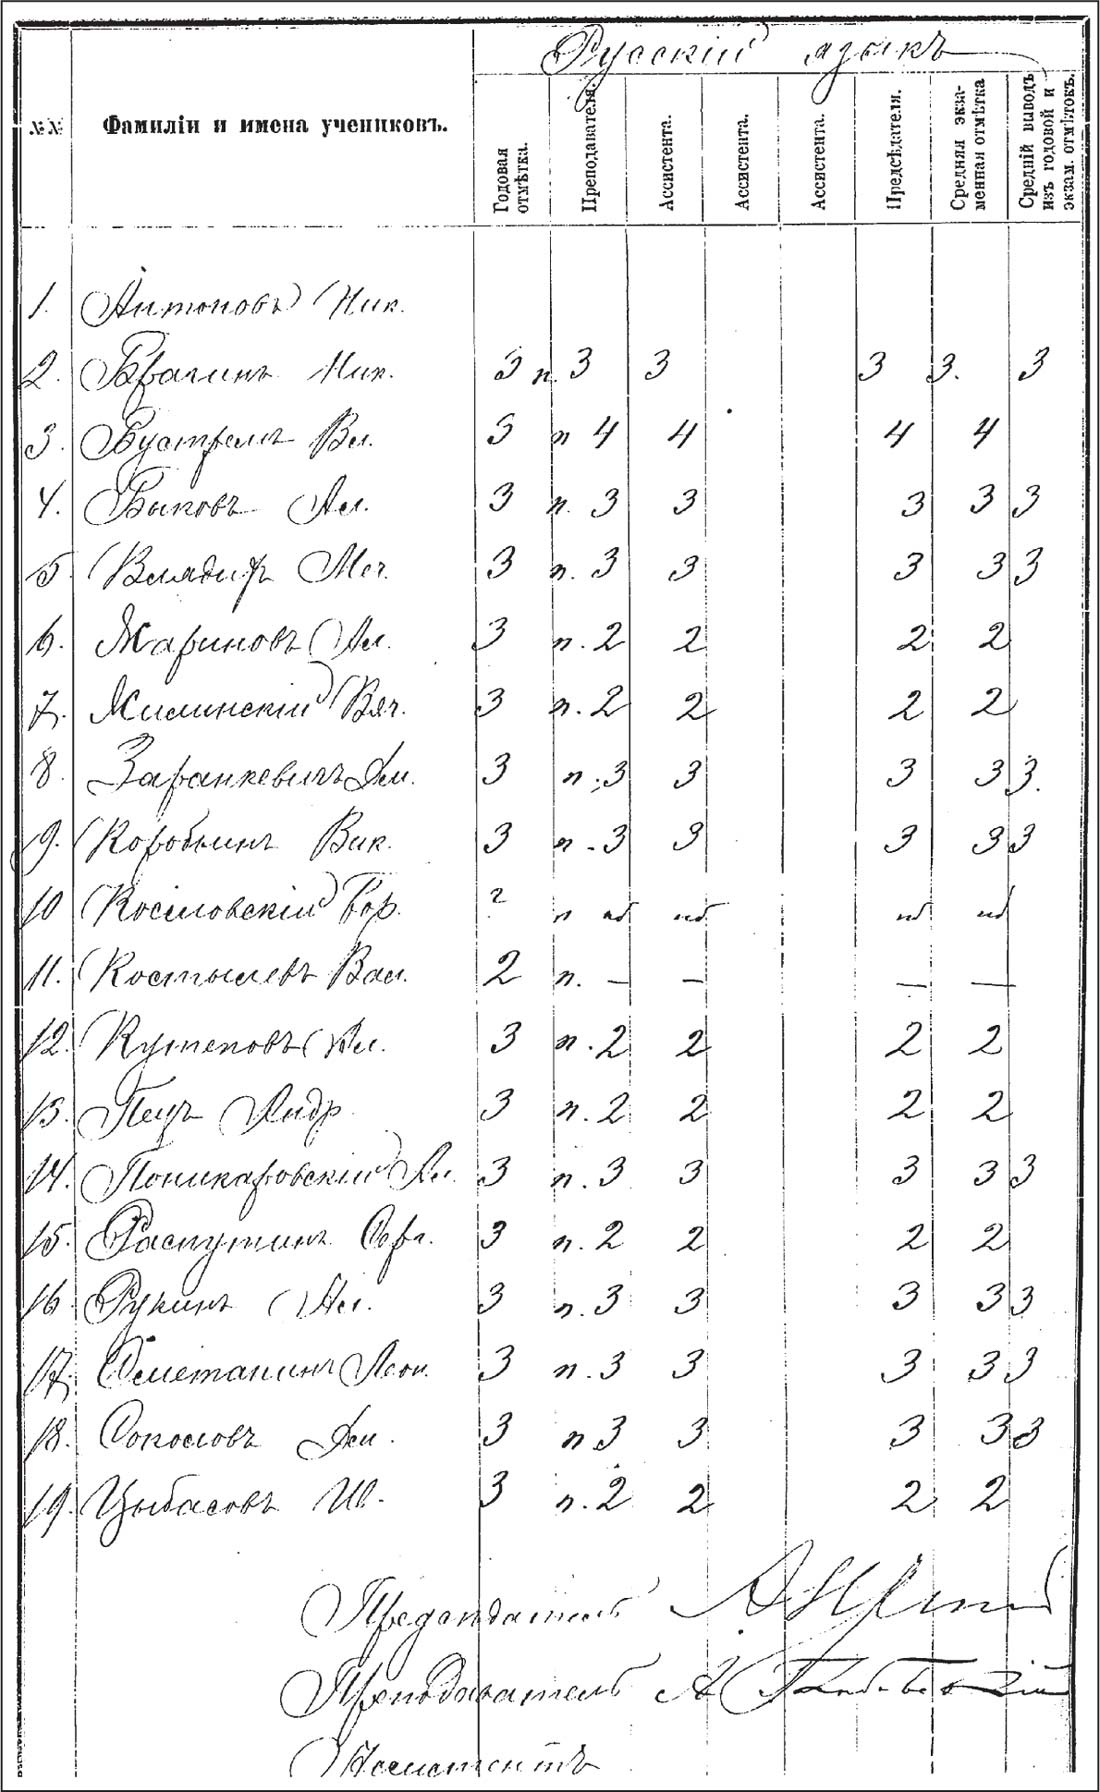 Русскій языкъ
№№ Фамиліи и имена учениковъ. Годовая отмѣтка. Преподавателя. Ассистента. Ассистента. Ассистента. Предсѣдателя. Средняя экзаменная отмѣтка Средній выводъ изъ годовой и экзам. отмѣтокъ.
1. Антоновъ Ник.
2. Брагинъ Ник. 3 п. 3 3 3 3. 3
3. Бустремъ Вл. 3 п 4 4 4 4
4. Быковъ Ал. 3 п. 3 3 3 3 3
5. Меч. 3 п. 3 3 3 3 3
6. Жариновъ Ал. 3 п. 2 2 2 2
7. Жилинскій Вяч. 3 п. 2 2 2 2
8. Заранкевичъ Дм. 3 п. 3 3 3 3 3.
9. Коробкинъ Вик. 3 п. 3 3 3 3 3
10 Бор. п нб нб нб нб
11. Костылевъ Вас. 2 п. — — — —
12. Кутеповъ Ал. 3 п. 2 2 2 2
13. Пецъ Андр. 3 п. 2 2 2 2
14. Поникаровскій Ал. 3 п. 3 3 3 3 3
15. Распутинъ Серг. 3 п. 2 2 2 2
16. Рукинъ Ал. 3 п. 3 3 3 3 3
17. Сметанинъ Леон. 3 п. 3 3 3 3 3
18. Соколовъ Дм. 3 п 3 3 3 3 3
19. Цыбасовъ Ив. 3 п. 2 2 2 2
Председатель
Преподаватель А
Ассистентъ